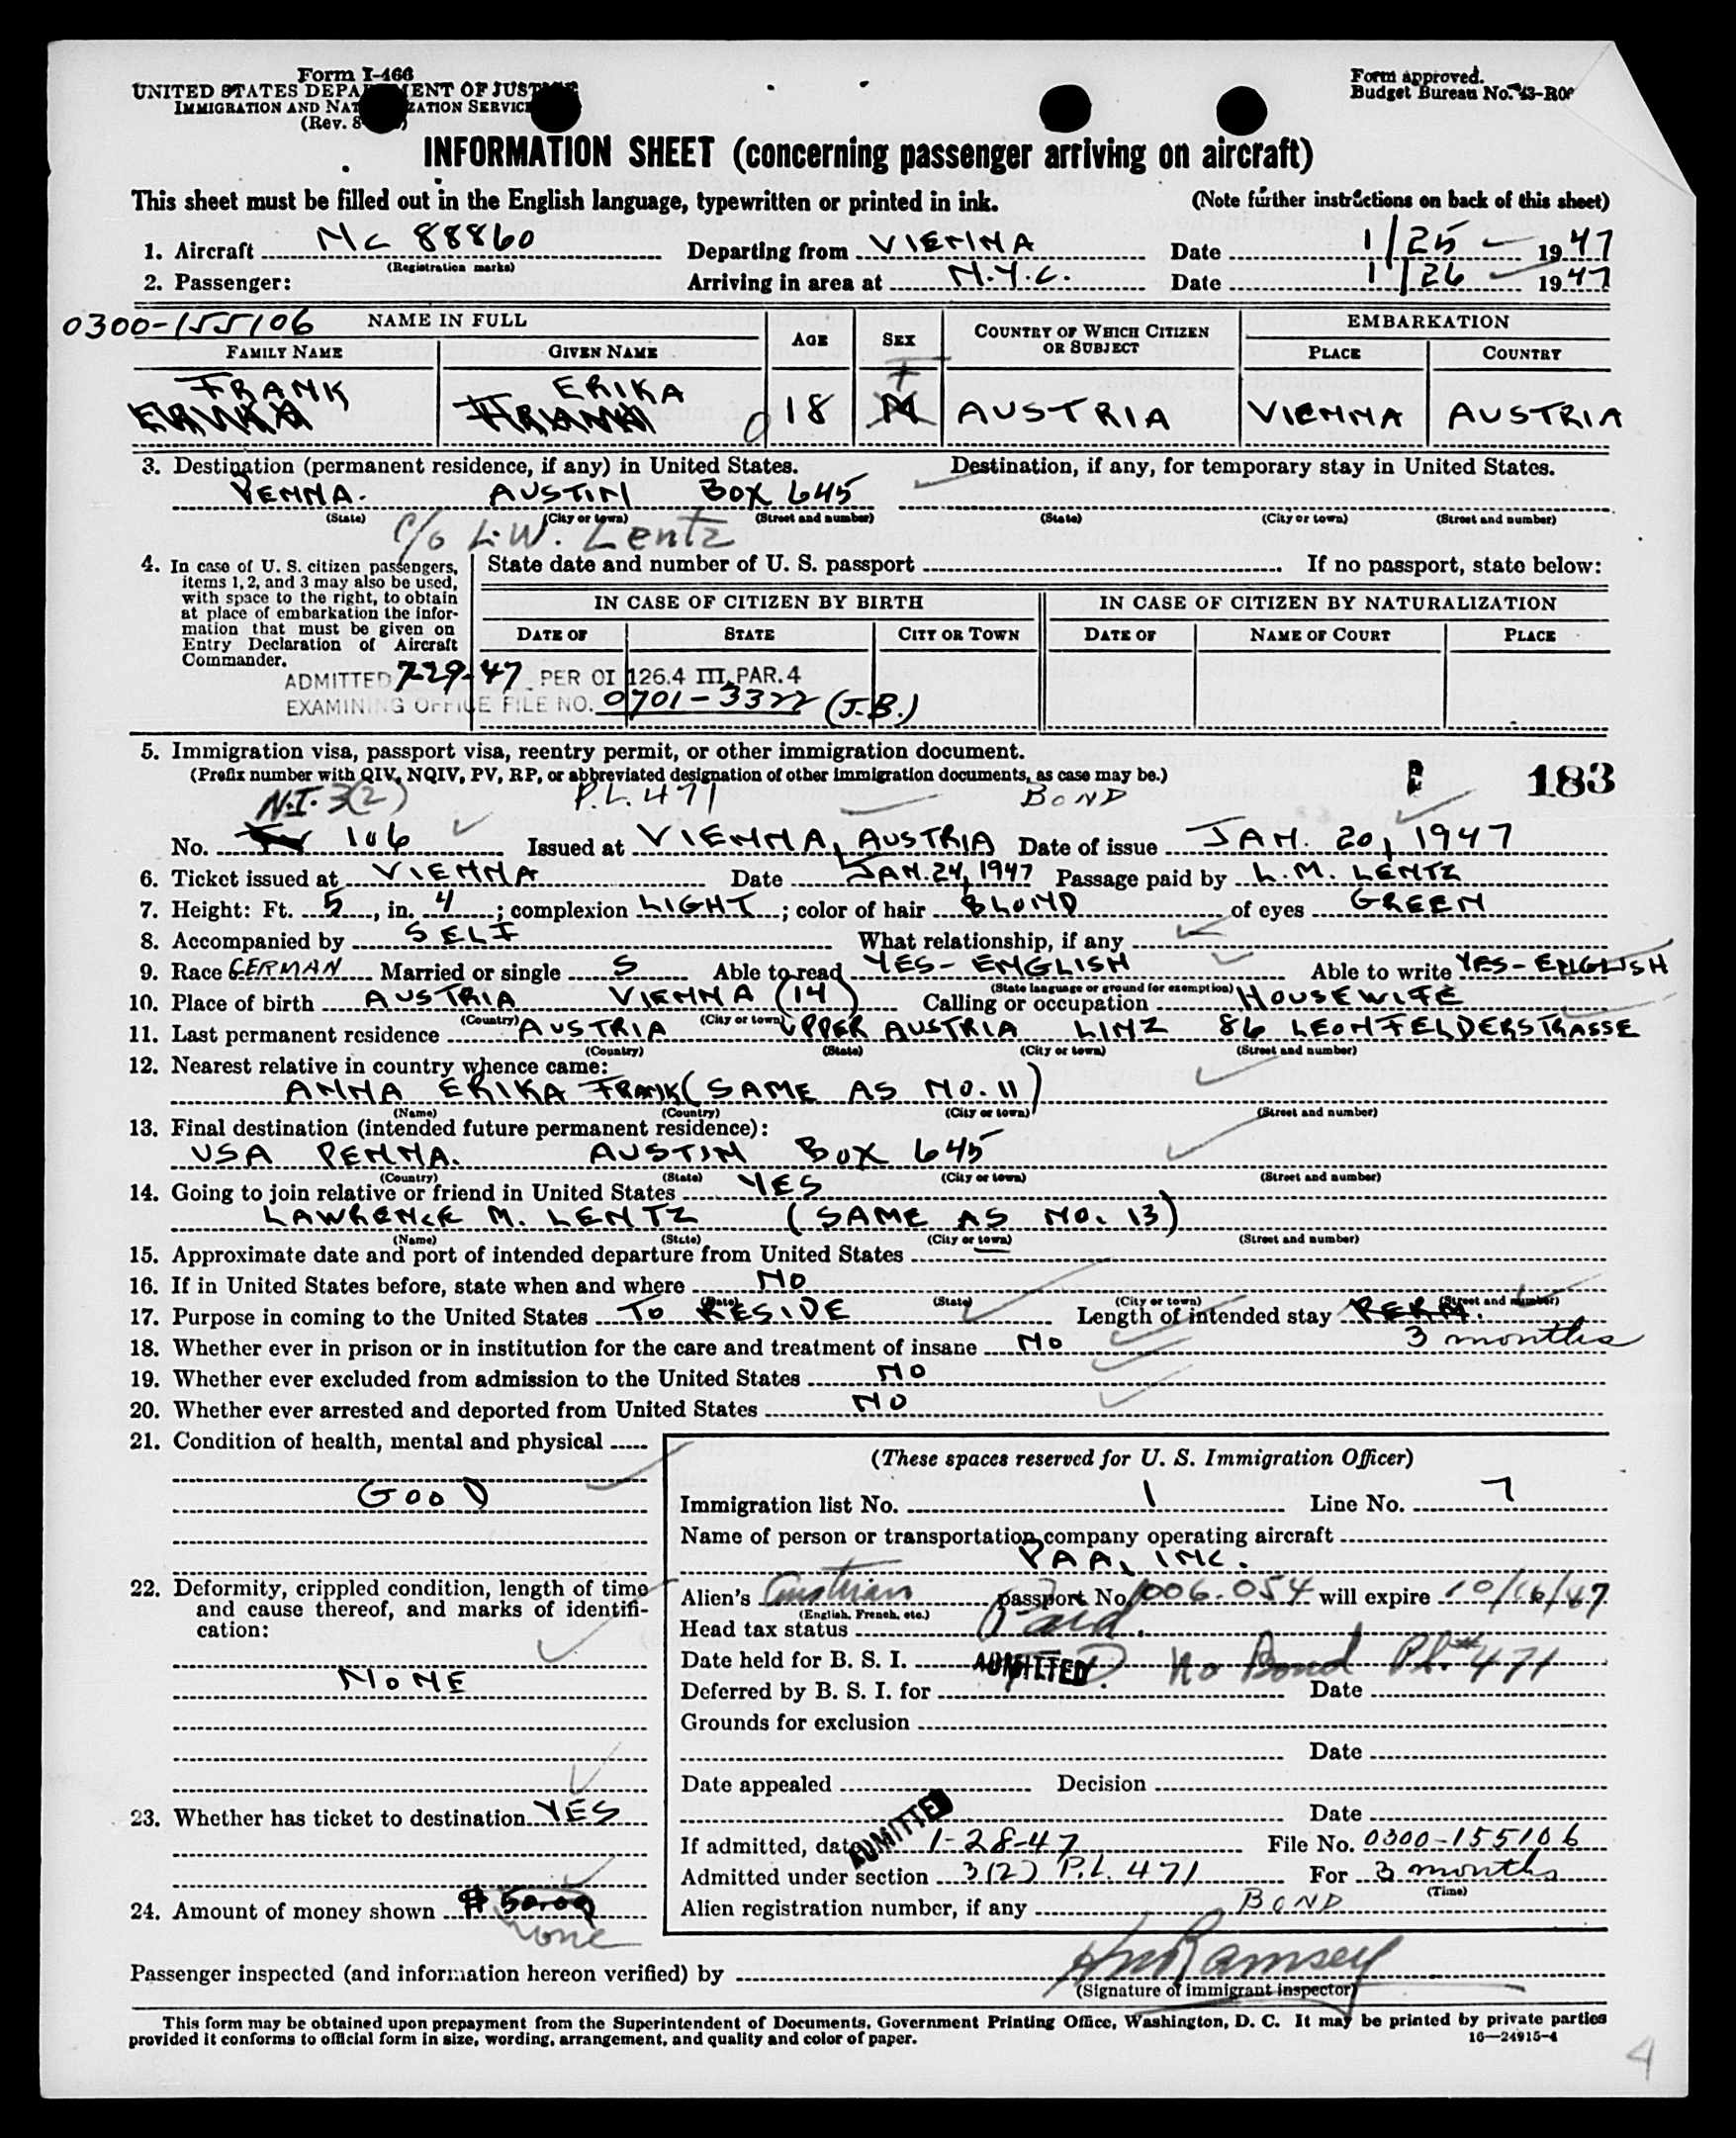 Form I-466
UNITED STATES DEPARTMENT OF JUSTICE
IMMIGRATION AND NATURALIZATION SERVICE
(Rev. 8
Form approved.
Budget Bureau No. 43-R0
INFORMATION SHEET (concerning passenger arriving on aircraft)
This sheet must be filled out in the English language, typewritten or printed in ink. (Note further instructions on back of this sheet)
1. Aircraft NC 88860 Departing from VIENNA Date 1/25 1947
(Registration marks)
2. Passenger: Arriving in area at N.Y.C. Date 1/26 1947
0300-155106 NAME IN FULL AGE SEX COUNTRY OF WHICH CITIZEN OR SUBJECT EMBARKATION
FAMILY NAME GIVEN NAME PLACE COUNTRY
FRANK ERIKA F
ERIKA FRANK 18 M AUSTRIA VIENNA AUSTRIA
3. Destination (permanent residence, if any) in United States. Destination, if any, for temporary stay in United States.
PENNA. AUSTIN BOX 645
(State) (City or town) (Street and number) (State) (City or town) (Street and number)
c/o L.W. Lentz
4. In case of U. S. citizen passengers, items 1, 2, and 3 may also be used, with space to the right, to obtain at place of embarkation the information that must be given on Entry Declaration of Aircraft Commander.
State date and number of U. S. passport If no passport, state below:
IN CASE OF CITIZEN BY BIRTH IN CASE OF CITIZEN BY NATURALIZATION
DATE OF STATE CITY OR TOWN DATE OF NAME OF COURT PLACE
ADMITTED 7-29-47 PER OI 126.4 III, PAR. 4
EXAMINING OFFICE FILE NO. 0701-3322 (J.B.)
5. Immigration visa, passport visa, reentry permit, or other immigration document.
(Prefix number with QIV, NQIV, PV, RP, or abbreviated designation of other immigration documents, as case may be.) 183
N.I. 3(2) P.L. 471 BOND
No. 106 Issued at VIENNA, AUSTRIA Date of issue JAN. 20, 1947
6. Ticket issued at VIENNA Date JAN. 24, 1947 Passage paid by L.M. LENTZ
7. Height: Ft. 5, in. 4; complexion LIGHT; color of hair BLOND of eyes GREEN
8. Accompanied by SELF What relationship, if any
9. Race GERMAN Married or single S Able to read YES-ENGLISH Able to write YES-ENGLISH
(State language or ground for exemption)
10. Place of birth AUSTRIA VIENNA (14) Calling or occupation HOUSEWIFE
(Country) (City or town)
11. Last permanent residence AUSTRIA UPPER AUSTRIA LINZ 86 LEONFELDERSTRASSE
(Country) (State) (City or town) (Street and number)
12. Nearest relative in country whence came:
ANNA ERIKA FRANK (SAME AS NO. 11)
(Name) (Country) (City or town) (Street and number)
13. Final destination (intended future permanent residence):
USA PENNA. AUSTIN BOX 645
(Country) (State) (City or town) (Street and number)
14. Going to join relative or friend in United States YES
LAWRENCE M. LENTZ (SAME AS NO. 13)
(Name) (State) (City or town) (Street and number)
15. Approximate date and port of intended departure from United States
16. If in United States before, state when and where NO
(Date) (State) (City or town) (Street and number)
17. Purpose in coming to the United States TO RESIDE Length of intended stay PERM.
3 months
18. Whether ever in prison or in institution for the care and treatment of insane NO
19. Whether ever excluded from admission to the United States NO
20. Whether ever arrested and deported from United States NO
21. Condition of health, mental and physical
GOOD
22. Deformity, crippled condition, length of time and cause thereof, and marks of identification:
NONE
23. Whether has ticket to destination YES
24. Amount of money shown $50.00
None
(These spaces reserved for U. S. Immigration Officer)
Immigration list No. 1 Line No. 7
Name of person or transportation company operating aircraft
PAA, INC.
Alien's Austrian passport No. 006.054 will expire 10/16/47
(English, French, etc.)
Head tax status Paid.
Date held for B. S. I. ADMITTED No Bond P.L. #471
Deferred by B. S. I. for Date
Grounds for exclusion
Date
Date appealed Decision
Date
ADMITTED
If admitted, date 1-28-47 File No. 0300-155106
Admitted under section 3(2) P.L. 471 For 3 months
(Time)
Alien registration number, if any BOND
Passenger inspected (and information hereon verified) by Ramsey
(Signature of immigrant inspector)
This form may be obtained upon prepayment from the Superintendent of Documents, Government Printing Office, Washington, D. C. It may be printed by private parties
provided it conforms to official form in size, wording, arrangement, and quality and color of paper. 16—24915-4
4